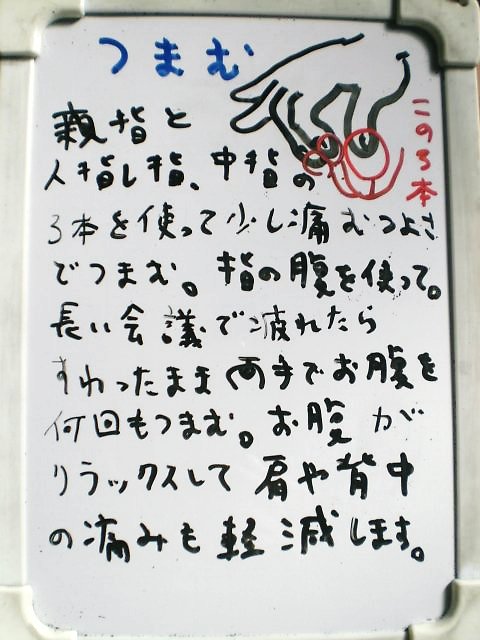 つまむ
この3本
親指と
人指し指、中指の
3本を使って少し痛むつよさ
でつまむ。指の腹を使って。
長い会議で疲れたら
すわったまま両手でお腹を
何回もつまむ。お腹が
リラックスして肩や背中
の痛みも軽減します。